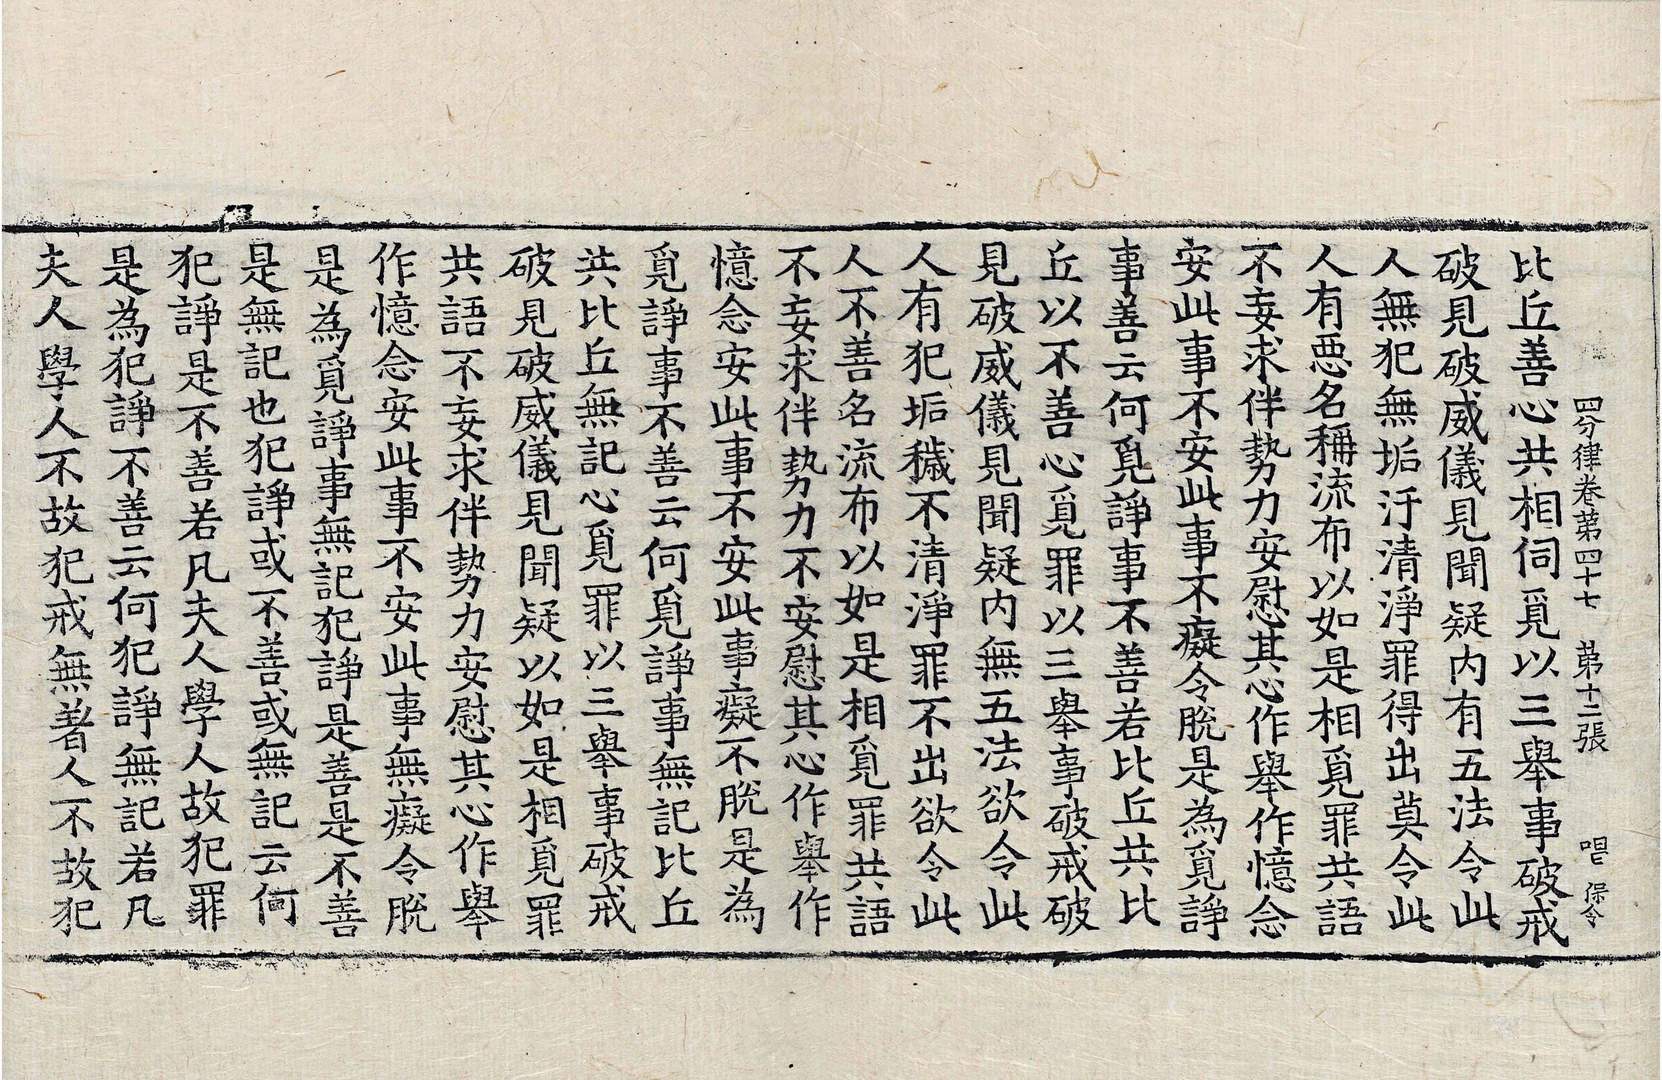 四分律卷第四十七 第十二張 唱 保令
比丘善心共相伺覓以三舉事破戒
破見破威儀見聞疑內有五法令此
人無犯無垢汙清淨罪得出莫令此
人有惡名稱流布以如是相覓罪共語
不妄求伴勢力安慰其心作舉作憶念
安此事不安此事不癡令脫是為覓諍
事善云何覓諍事不善若比丘共比
丘以不善心覓罪以三舉事破戒破
見破威儀見聞疑內無五法欲令此
人有犯垢穢不清淨罪不出欲令此
人不善名流布以如是相覓罪共語
不妄求伴勢力不安慰其心作舉作
憶念安此事不安此事癡不脫是為
覓諍事不善云何覓諍事無記比丘
共比丘無記心覓罪以三舉事破戒
破見破威儀見聞疑以如是相覓罪
共語不妄求伴勢力安慰其心作舉
作憶念安此事不安此事無癡令脫
是為覓諍事無記犯諍是善是不善
是無記也犯諍或不善或無記云何
犯諍是不善若凡夫人學人故犯罪
是為犯諍不善云何犯諍無記若凡
夫人學人不故犯戒無著人不故犯